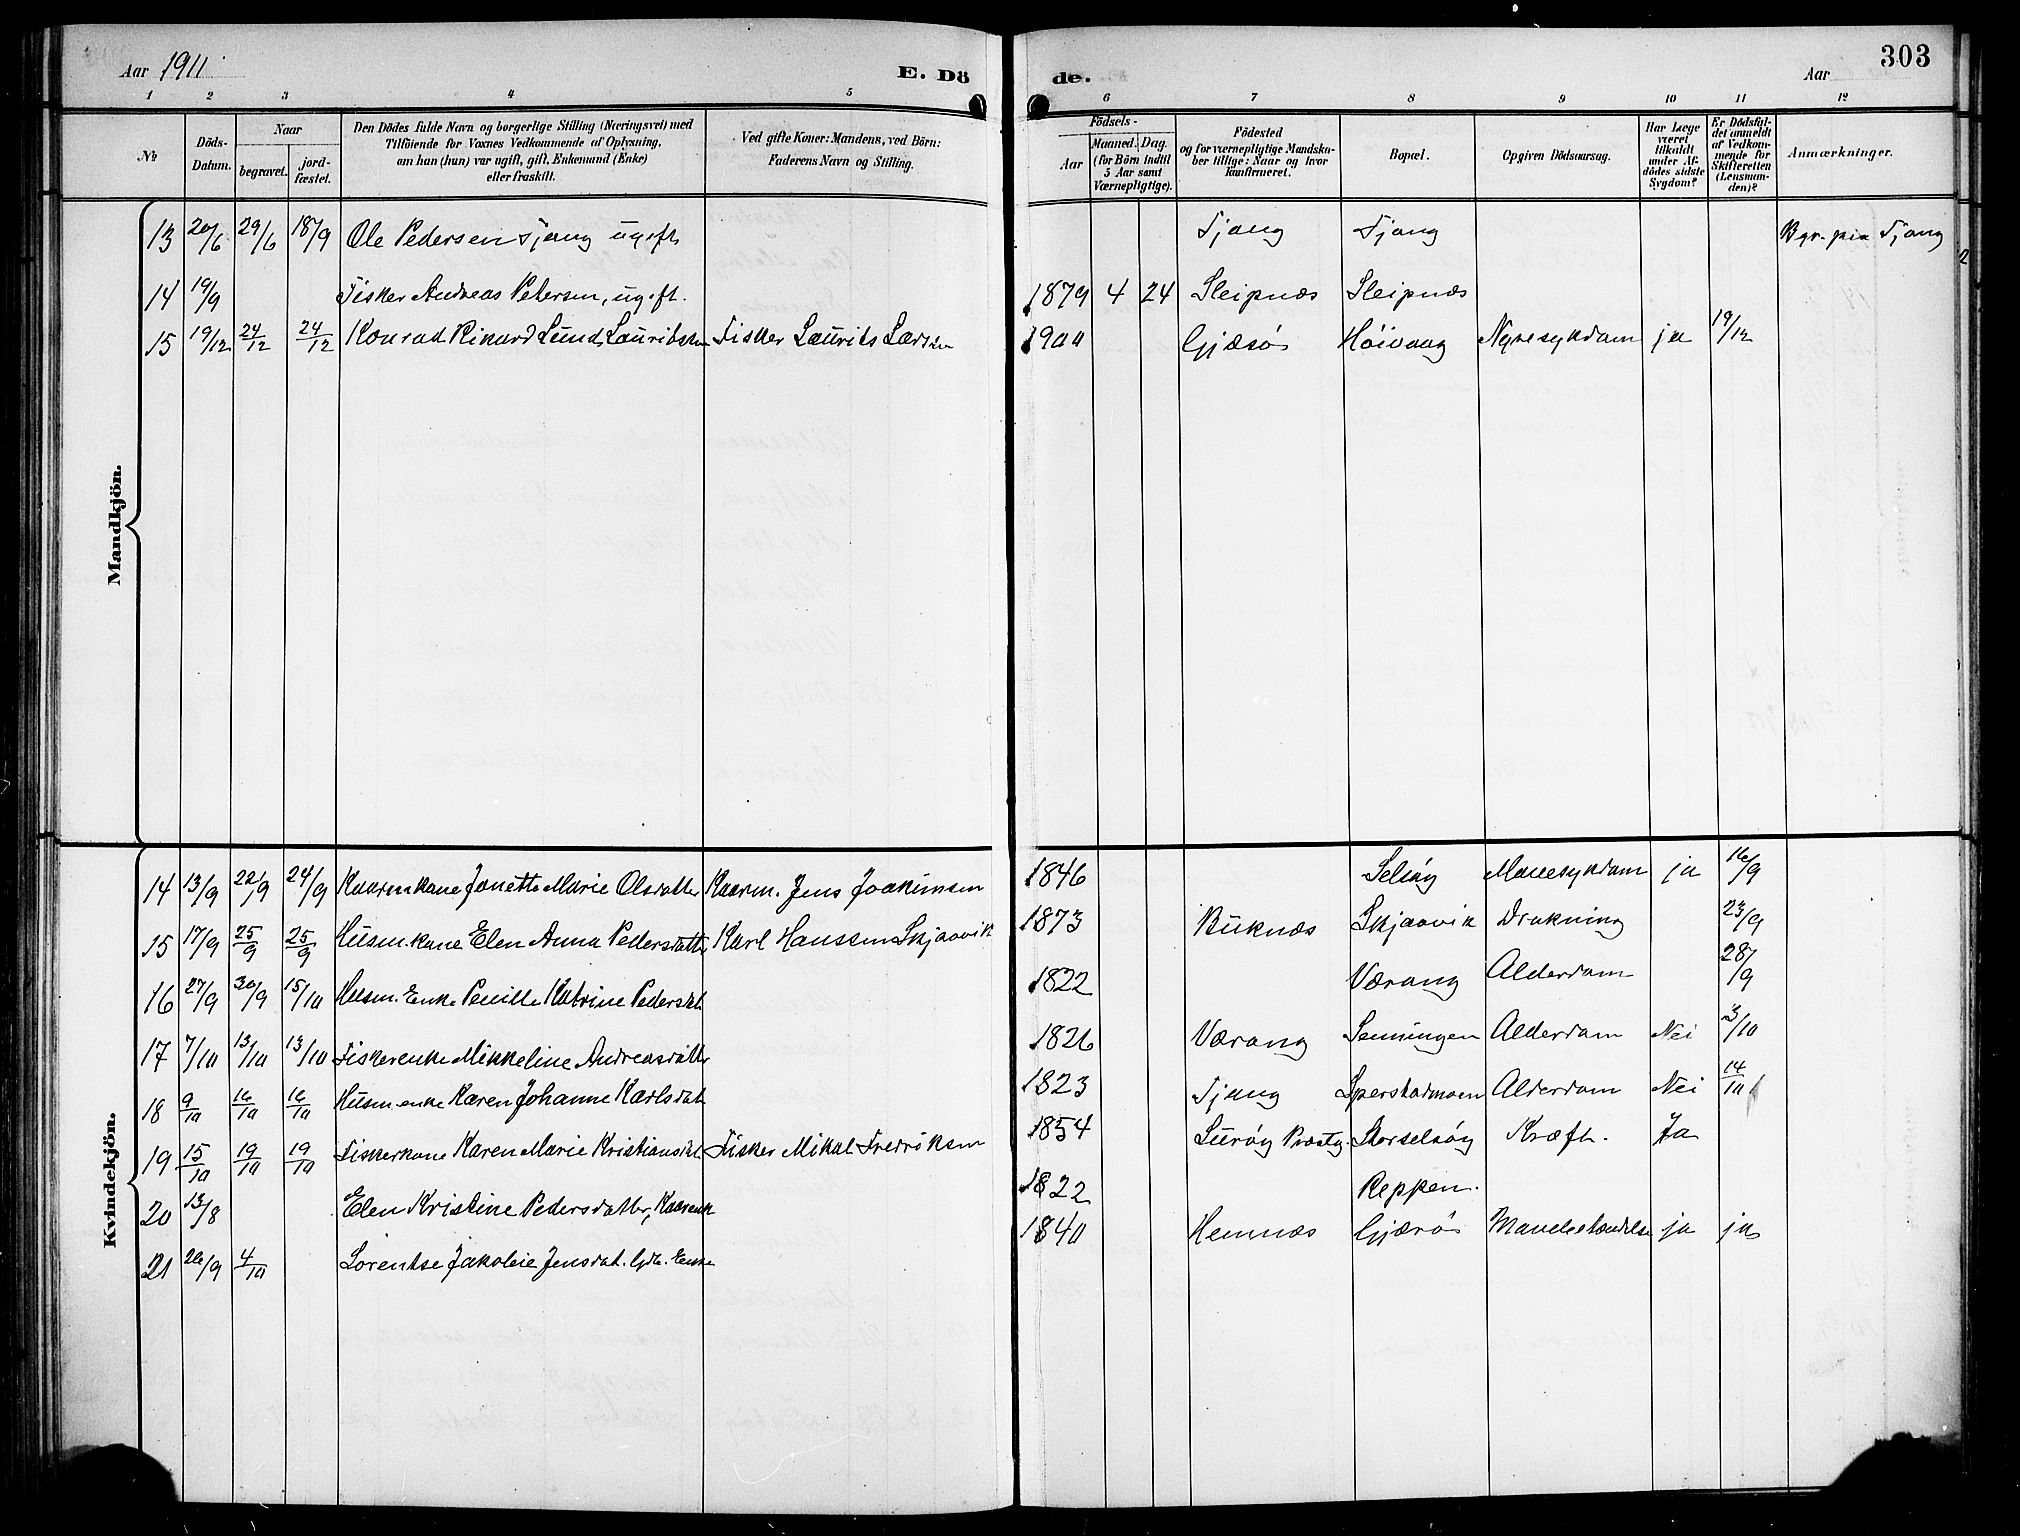 Aar 1911 E. Dö de. Aar 303
1 2 3 4 5 6 7 8 9 10 11 12
№
Döds-Datum.
Naar
begravet.
jord-fæstet.
Den Dödes fulde Navn og borgerlige Stilling (Næringsvei) med
Tilföiende for Voxnes Vedkommende af Oplysning,
om han (hun) var ugift, gift, Enkemand (Enke)
eller fraskilt.
Ved gifte Koner: Mandens, ved Börn:
Faderens Navn og Stilling.
Födsels-
Aar
Maaned. Dag.
(for Börn indtil
5 Aar samt
Værnepligtige).
Födested
og for værnepligtige Mandska-
ber tillige: Naar og hvor
konfirmeret.
Bopæl.
Opgiven Dödsaarsag.
Har Læge
været
tilkaldt
under Af-
dödes sidste
Sygdom?
Er Dödsfal-
det anmeldt
af Vedkom-
mende for
Skifteretten
(Lensman-
den)?
Anmærkninger.
Mandkjön.
13 20/6 29/6 18/9 Ole Pedersen Tjong ugift Tjong Tjong Bgr. paa Tjong
14 19/9 Fisker Andreas Petersen, ugift. 1879 4 24 Sleipnæs Sleipnæs
15 19/12 24/12 24/12 Konrad Rikard Lund Lauritsen Fisker Laurits Larsen 1900 Gjæsø Høivaag Nyresykdom ja 19/12
Kvindekjön.
14 13/9 22/9 24/9 Kaarmkone Janette Marie Olsdatter Kaarm. Jens Joakimsen 1846 Selsøy Mavesykdom ja 16/9
15 17/9 25/9 25/9 Husm.kone Elen Anna Pedersdatter Karl Hanssen Skjaavik 1873 Buknæs Skjaavik Drukning 23/9
16 27/9 30/9 15/10 Husm. Enke Pernille Katrine Pedersdat. 1822 Værang Alderdom 28/9
17 7/10 13/10 13/10 Fiskerenke Mikkeline Andreasdatter 1826 Værang Senningen Alderdom Nei 3/10
18 9/10 16/10 16/10 Husm.enke Karen Johanne Karlsdat. 1823 Tjong Sperstadmoen Alderdom Nei 14/10
19 15/10 19/10 19/10 Fiskerkone Karen Marie Kristiansdat. Fisker Mikal Fredriksen 1854 Lurøy Præstg. Storselsøy Kræft. Ja
20 13/8 Elen Kristine Pedersdatter, 1822 Reppen.
21 20/9 4/10 Lorentse Jakobie Jensdat. Gdb. Enke 1840 Hemnæs Gjærø ja ja